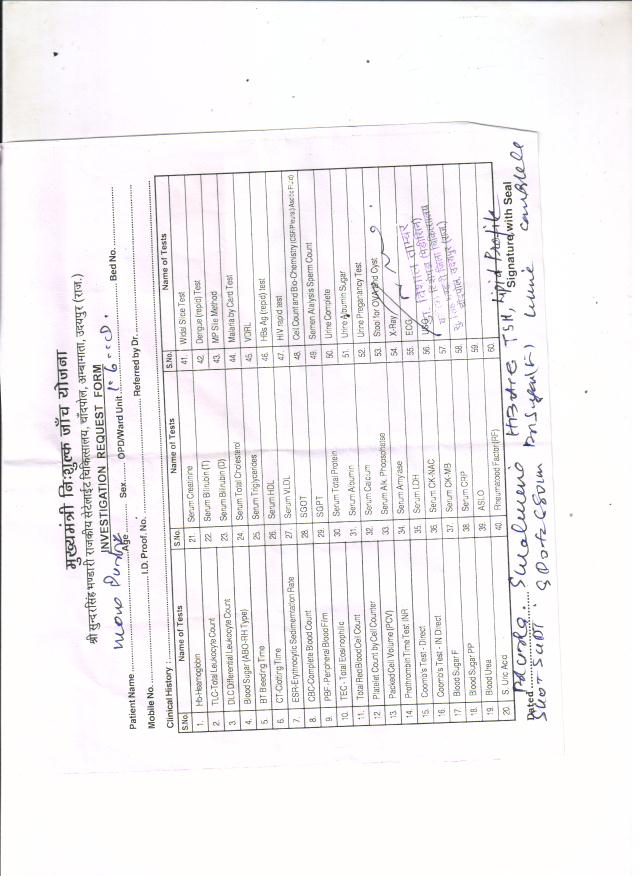 मुख्यमंत्री निःशुल्क जाँच योजना
श्री सुन्दरसिंह भण्डारी राजकीय सेटेलाईट चिकित्सालय, चाँदपोल, अम्बामाता, उदयपुर (राज.)
INVESTIGATION REQUEST FORM
Patient Name Age Sex OPD/Ward Unit Bed No.
Mobile No. I.D. Proof. No. Referred by Dr.
Clinical History :
S.No. Name of Tests S.No. Name of Tests S.No. Name of Tests
1. Hb-Haemogiobin 21. Serum Creatinine 41. Widal Slice Test
2. TLC-Total Leukocyte Count 22. Serum Bilirubin (T) 42. Dengue (repid) Test
3 DLC Differential Leukocyte Count 23. Serum Bilirubin (D) 43. MP Slie Method
4. Blood Sugar (ABO-RH Type) 24. Serum Total Cholesterol 44. Malaria by Card Test
5. BT Bleeding Time 25. Serum Triglycerides 45. VDRL
6. CT-Clotting Time 26. Serum HDL 46. HBs Ag (repid) test
7. ESR-Erythrocytic Sedimentation Rate 27. Serum VLDL 47. HIV rapid test
8. CBC-Complete Blood Count 28. SGOT 48. Cell Count and Bio-Chemistry
9. PBF -Peripheral Blood Film 29. SGPT 49. Semen Atalysis Sperm Count
10. TEC - Total Eosinophilic 30 Serum Total Protein 50. Urine Complete
11. Total Red Blood Cell Count 31. Serum Albumin 51. Urine Albumin Sugar
12. Platelet Count by Cell Counter 32. Serum Calcium 52. Urine Preganancy Test
13. Packed Cell Volume (PCV) 33 Serum Alk. Phosphatse 53. Stool for OVA and Cyst
14. Prothrombin Time Test INR 34. Serum Amylase 54. X-Ray
15. Coomb's Test - Direct 35. Serum LDH 55. ECG
16. Coomb's Test - IN Direct 36. Serum CK-NAC 56. USG
17. Blood Sugar F 37. Serum CK-MB 57.
18. Blood Sugar PP 38. Serum CRP 58.
19. Blood Urea 39. ASLO 59.
20 S. Uric Acid 40. Rheumatoid Factor (RF) 60.
Dated Signature with Seal
TSH, Lipid Profile
SGOT SGPT